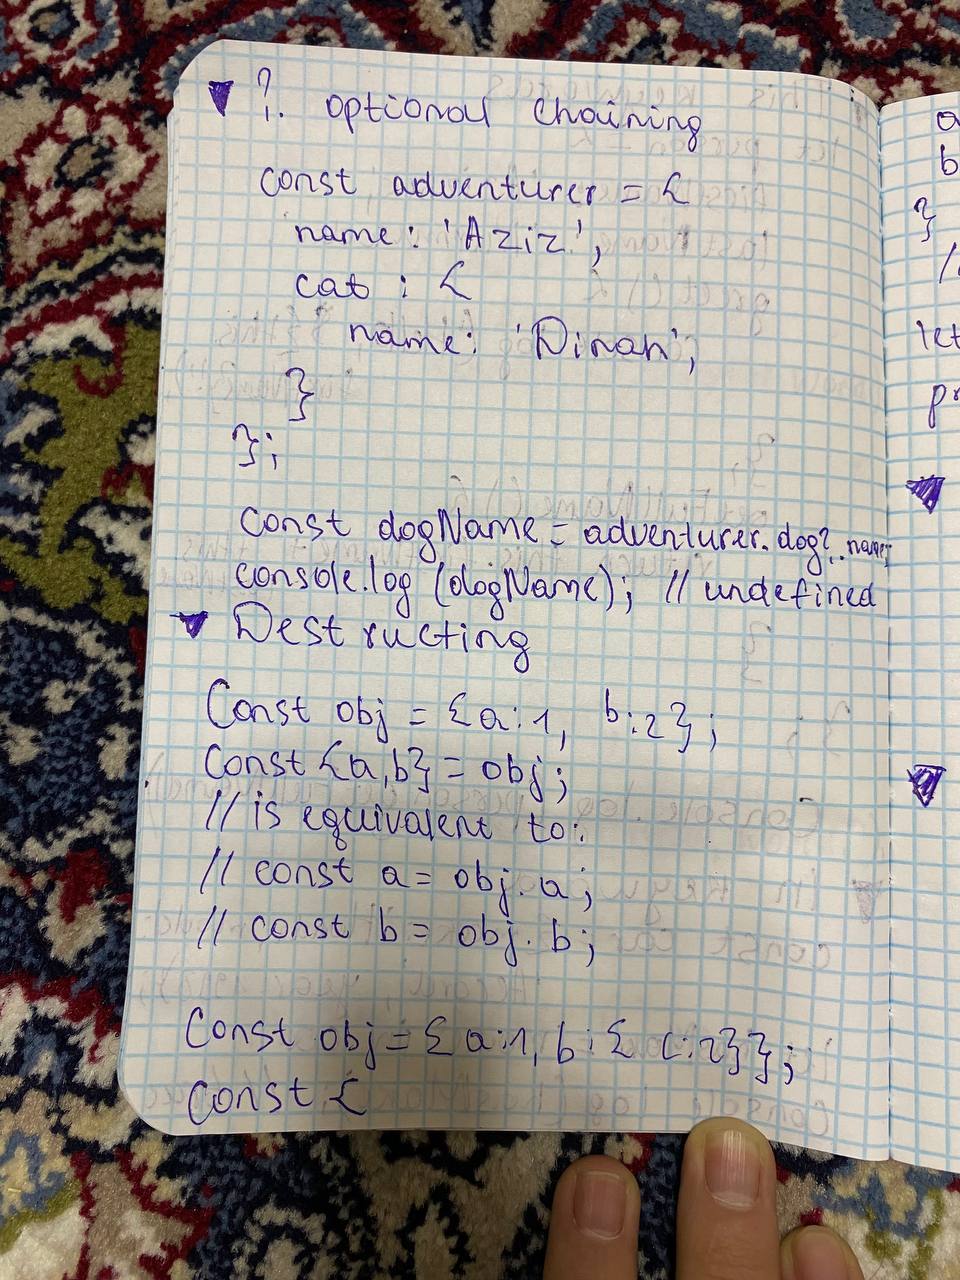 ?. optional chaining
const adventurer = {
name: 'Aziz',
cat : {
name: 'Dinah',
}
};
const dogName = adventurer.dog?.name;
console.log (dogName); // undefined
Destructing
Const obj = {a:1, b:2};
Const {a,b} = obj;
// is equivalent to:
// const a = obj.a;
// const b = obj.b;
Const obj = {a:1, b:{ c:2}};
Const {
a
b
}
let
pr